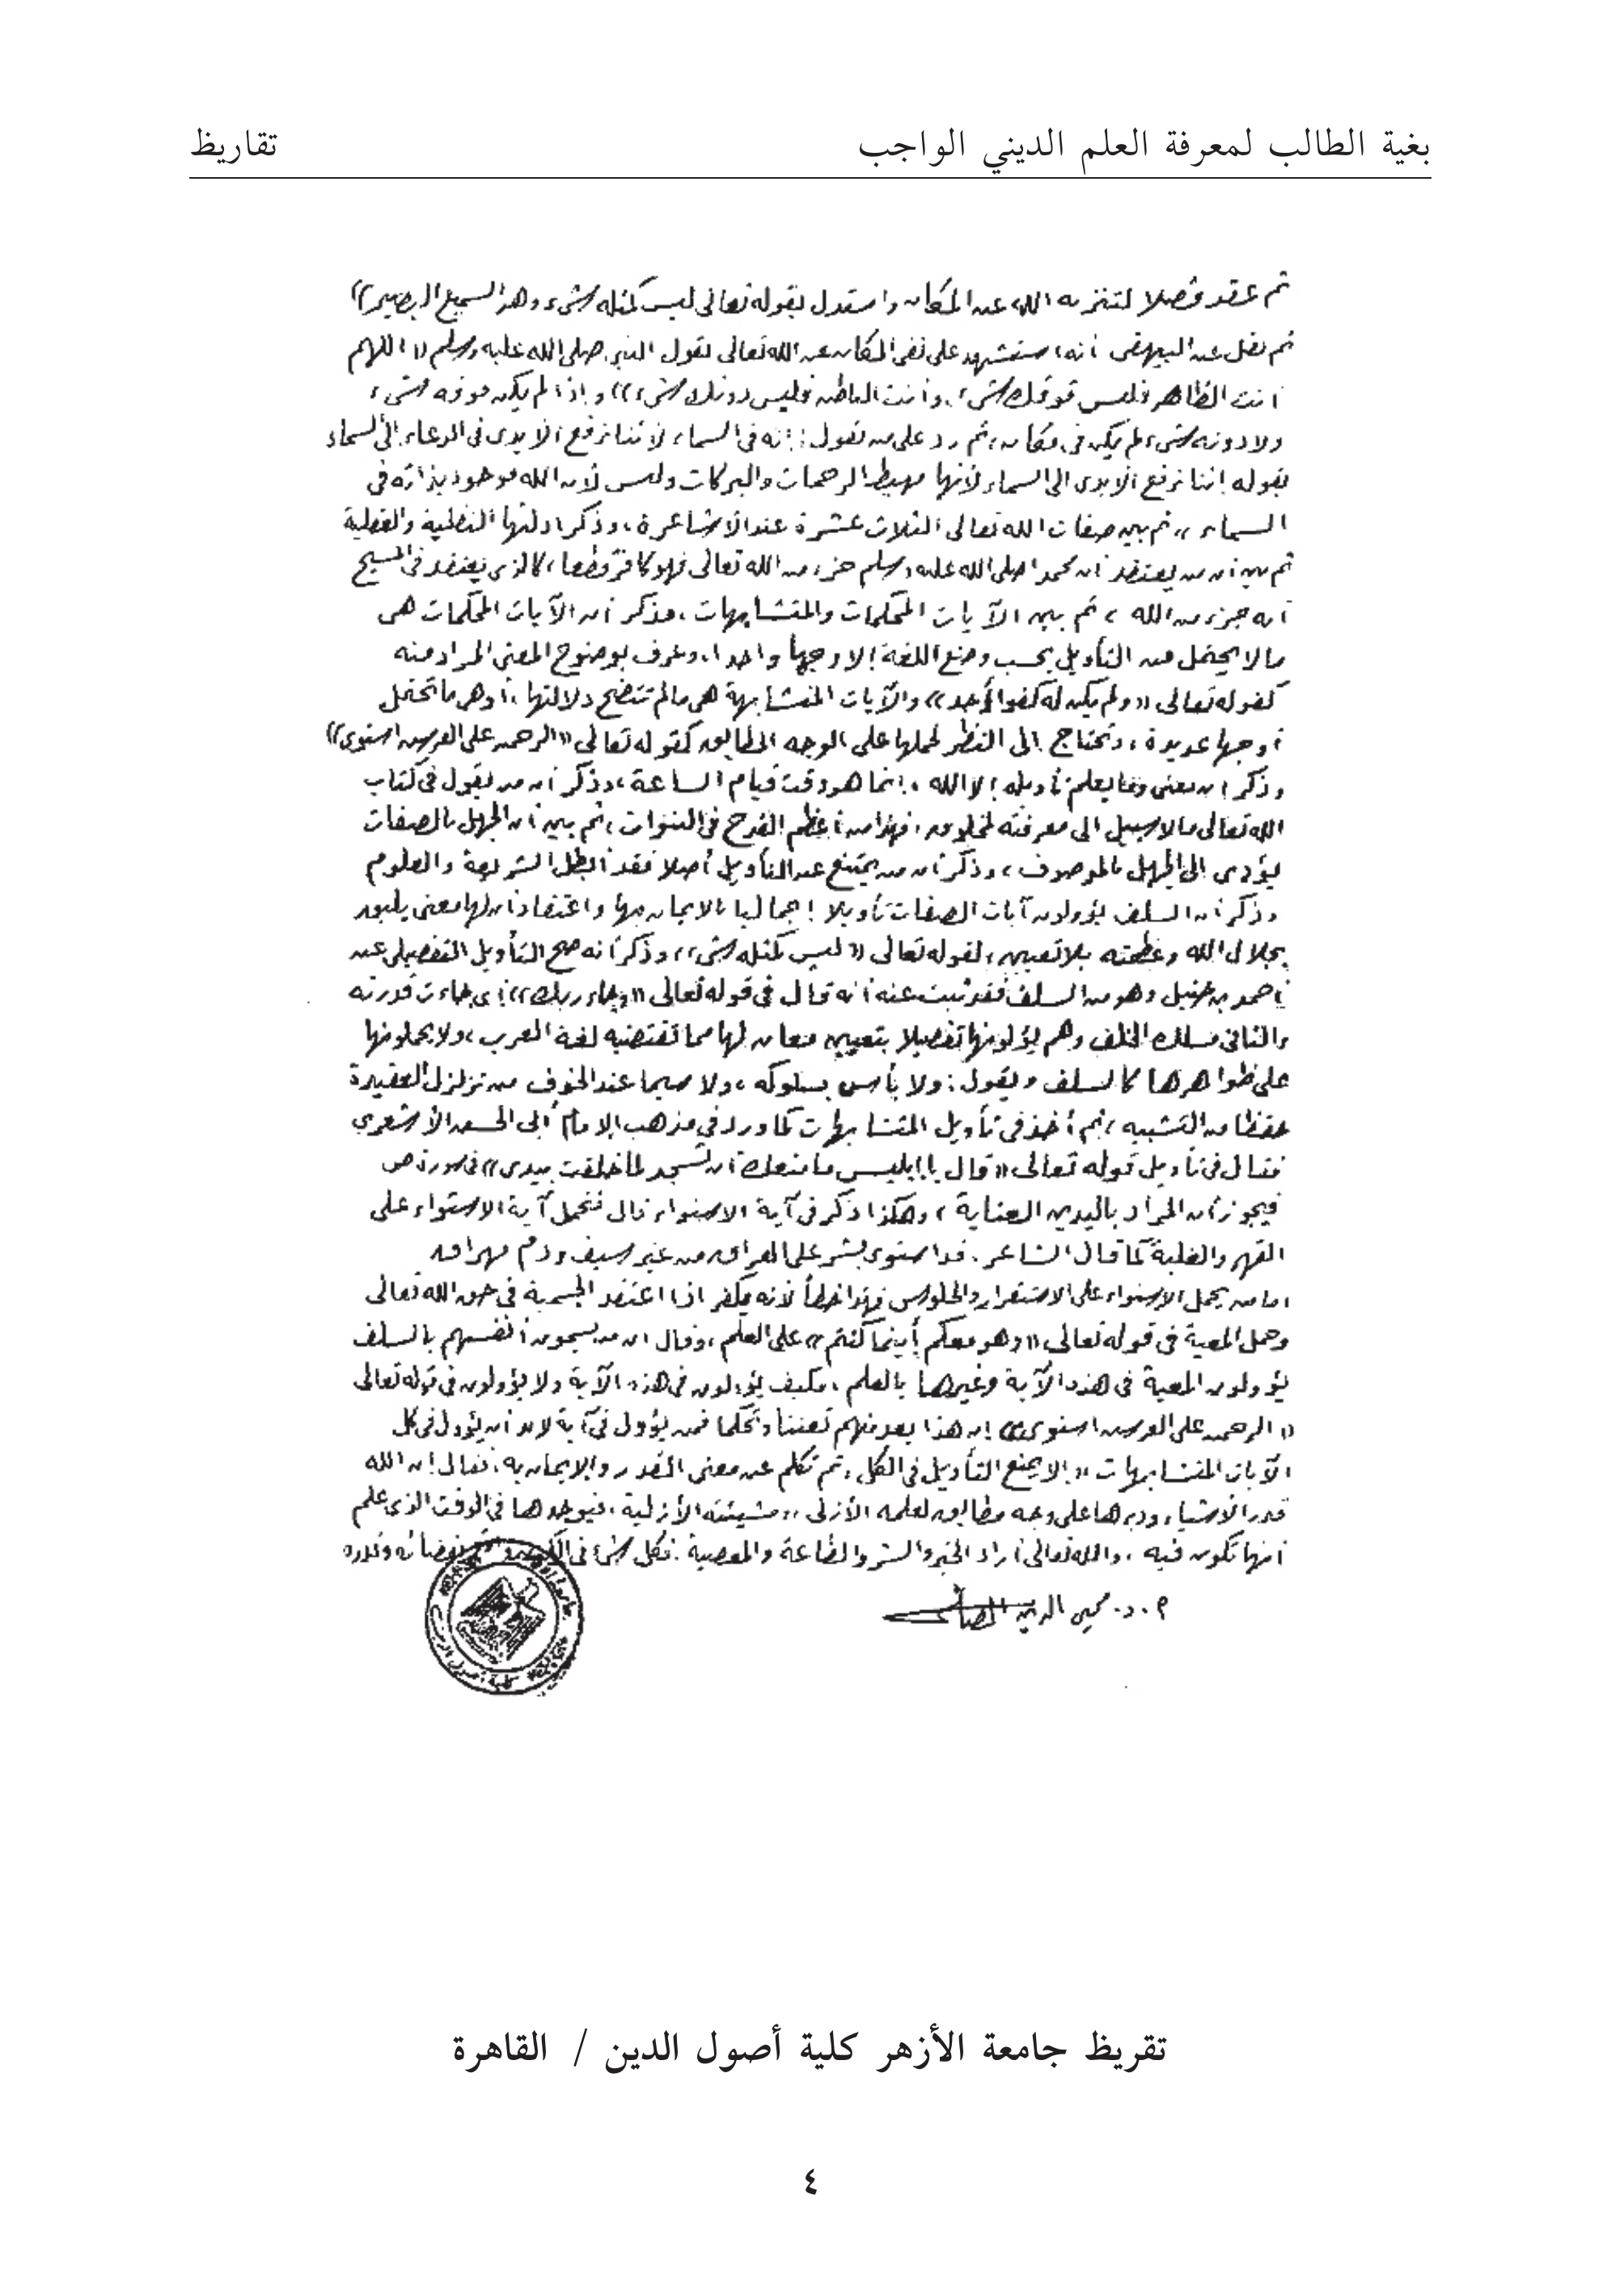 بغية الطالب لمعرفة العلم الديني الواجب
تقاريظ
ثم عقد فصلا لتنزيه الله عن المكان واستدل بقوله تعالى ليس كمثله شىء وهو السميع البصير))
ثم نقل عن البيهقى أنه استشهد على نفى المكان عن الله تعالى بقول النبى صلى الله عليه وسلم ((اللهم
أنت الظاهر فليس فوقك شىء، وأنت الباطن فليس دونك شىء)) وإذا لم يكن فوقه شىء
ولا دونه شىء لم يكن فى مكان، ثم رد على من تقول: إنه فى السماء لأننا نرفع الأيدى فى الدعاء إلى السماء
بقوله إننا نرفع الأيدى إلى السماء لأنها مهبط الرحمات والبركات وليس لأن الله موجود بذاته فى
السماء، ثم بين صفات الله تعالى الثلاث عشرة عند الأشاعرة، وذكر أدلتها النقلية والعقلية
ثم بين أن من يعتقد أن محمدا صلى الله عليه وسلم جزء من الله تعالى فهو كافر قطعا، كالذى يعتقد فى المسيح
أنه جزء من الله، ثم بين الآيات المحكمات والمتشابهات، فذكر أن الآيات المحكمات هى
ما لا يحتمل من التأويل بحسب وضع اللغة إلا وجها واحدا، وعرف بوضوح المعنى المراد منه
كقوله تعالى ((ولم يكن له كفوا أحد)) والآيات المتشابهة هى ما لم تتضح دلالتها، أو هى ما تحتمل
أوجها عديدة، وتحتاج إلى النظر لحملها على الوجه المطابق كقوله تعالى ((الرحمن على العرش استوى))
وذكر أن معنى وما يعلم تأويله إلا الله، إنما هو وقت قيام الساعة، وذكر أن من يقول فى كتاب
الله تعالى ما لا سبيل إلى معرفته لمخلوق، فهذا من أعظم القدح فى النبوات، ثم بين أن الجهل بالصفات
يؤدى إلى الجهل بالموصوف، وذكر أن من يمتنع عن التأويل أصلا فقد أبطل الشريعة والعلوم
وذكر أن السلف يؤولون آيات الصفات تأويلا إجماليا بالإيمان بها واعتقاد أن لها معنى يليق
بجلال الله وعظمته بلا تعيين، لقوله تعالى ((ليس كمثله شىء))، وذكر أنه صح التأويل التفصيلى عن
أحمد بن حنبل وهو من السلف فقد ثبت عنه أنه قال فى قوله تعالى ((وجاء ربك)) إى جاءت قدرته
والثانى مسلك الخلف وهم يؤلونها تفصيلا بتعيين معان لها مما تقتضيه لغة العرب، ولا يحملونها
على ظواهرها كالسلف ويقول: ولا بأس بسلوكه، ولا سيما عند الخوف من تزلزل العقيدة
حفظا من التشبيه، ثم أخذ فى تأويل المتشابهات كما ورد فى مذهب الإمام أبى الحسن الأشعري
فقال فى تأويل قوله تعالى ((قال يا إبليس ما منعك أن تسجد لما خلقت بيدى)) فى سورة ص
فيجوز أن المراد باليدين العناية، وهكذا ذكر فى آية الاستواء قال فتحمل آية الاستواء على
القهر والغلبة كما قال الشاعر. قد استوى بشر على العراق من غير سيف ودم مهراق
أما من يحمل الاستواء على الاستقرار والجلوس فهذا خطأ لأنه يكفر إذا اعتقد الجسمية فى حق الله تعالى
وحمل المعية فى قوله تعالى ((وهو معكم أينما كنتم)) على العلم، وقال إن من يسمون أنفسهم بالسلف
يؤولون المعية فى هذه الآية وغيرها بالعلم، فكيف يؤولون فى هذه الآية ولا يؤولون فى قوله تعالى
((الرحمن على العرش استوى)) إن هذا يعد منهم تعنتا وتحكما فمن يؤول فى آية لابد أن يؤول فى كل
الآيات المتشابهات، وإلا يمنع التأويل فى الكل، ثم تكلم عن معنى القدر والإيمان به، فقال إن الله
قدر الأشياء ودبرها على وجه مطابق لعلمه الأزلى، ومشيئته الأزلية، فيوجدها فى الوقت الذى علم
أنها تكون فيه، والله تعالى أراد الخير والشر والطاعة والمعصية. فكل شىء فى الكون بقضائه وقدره
أ.د. محيى الدين الصافى
تقريظ جامعة الأزهر كلية أصول الدين / القاهرة
٤